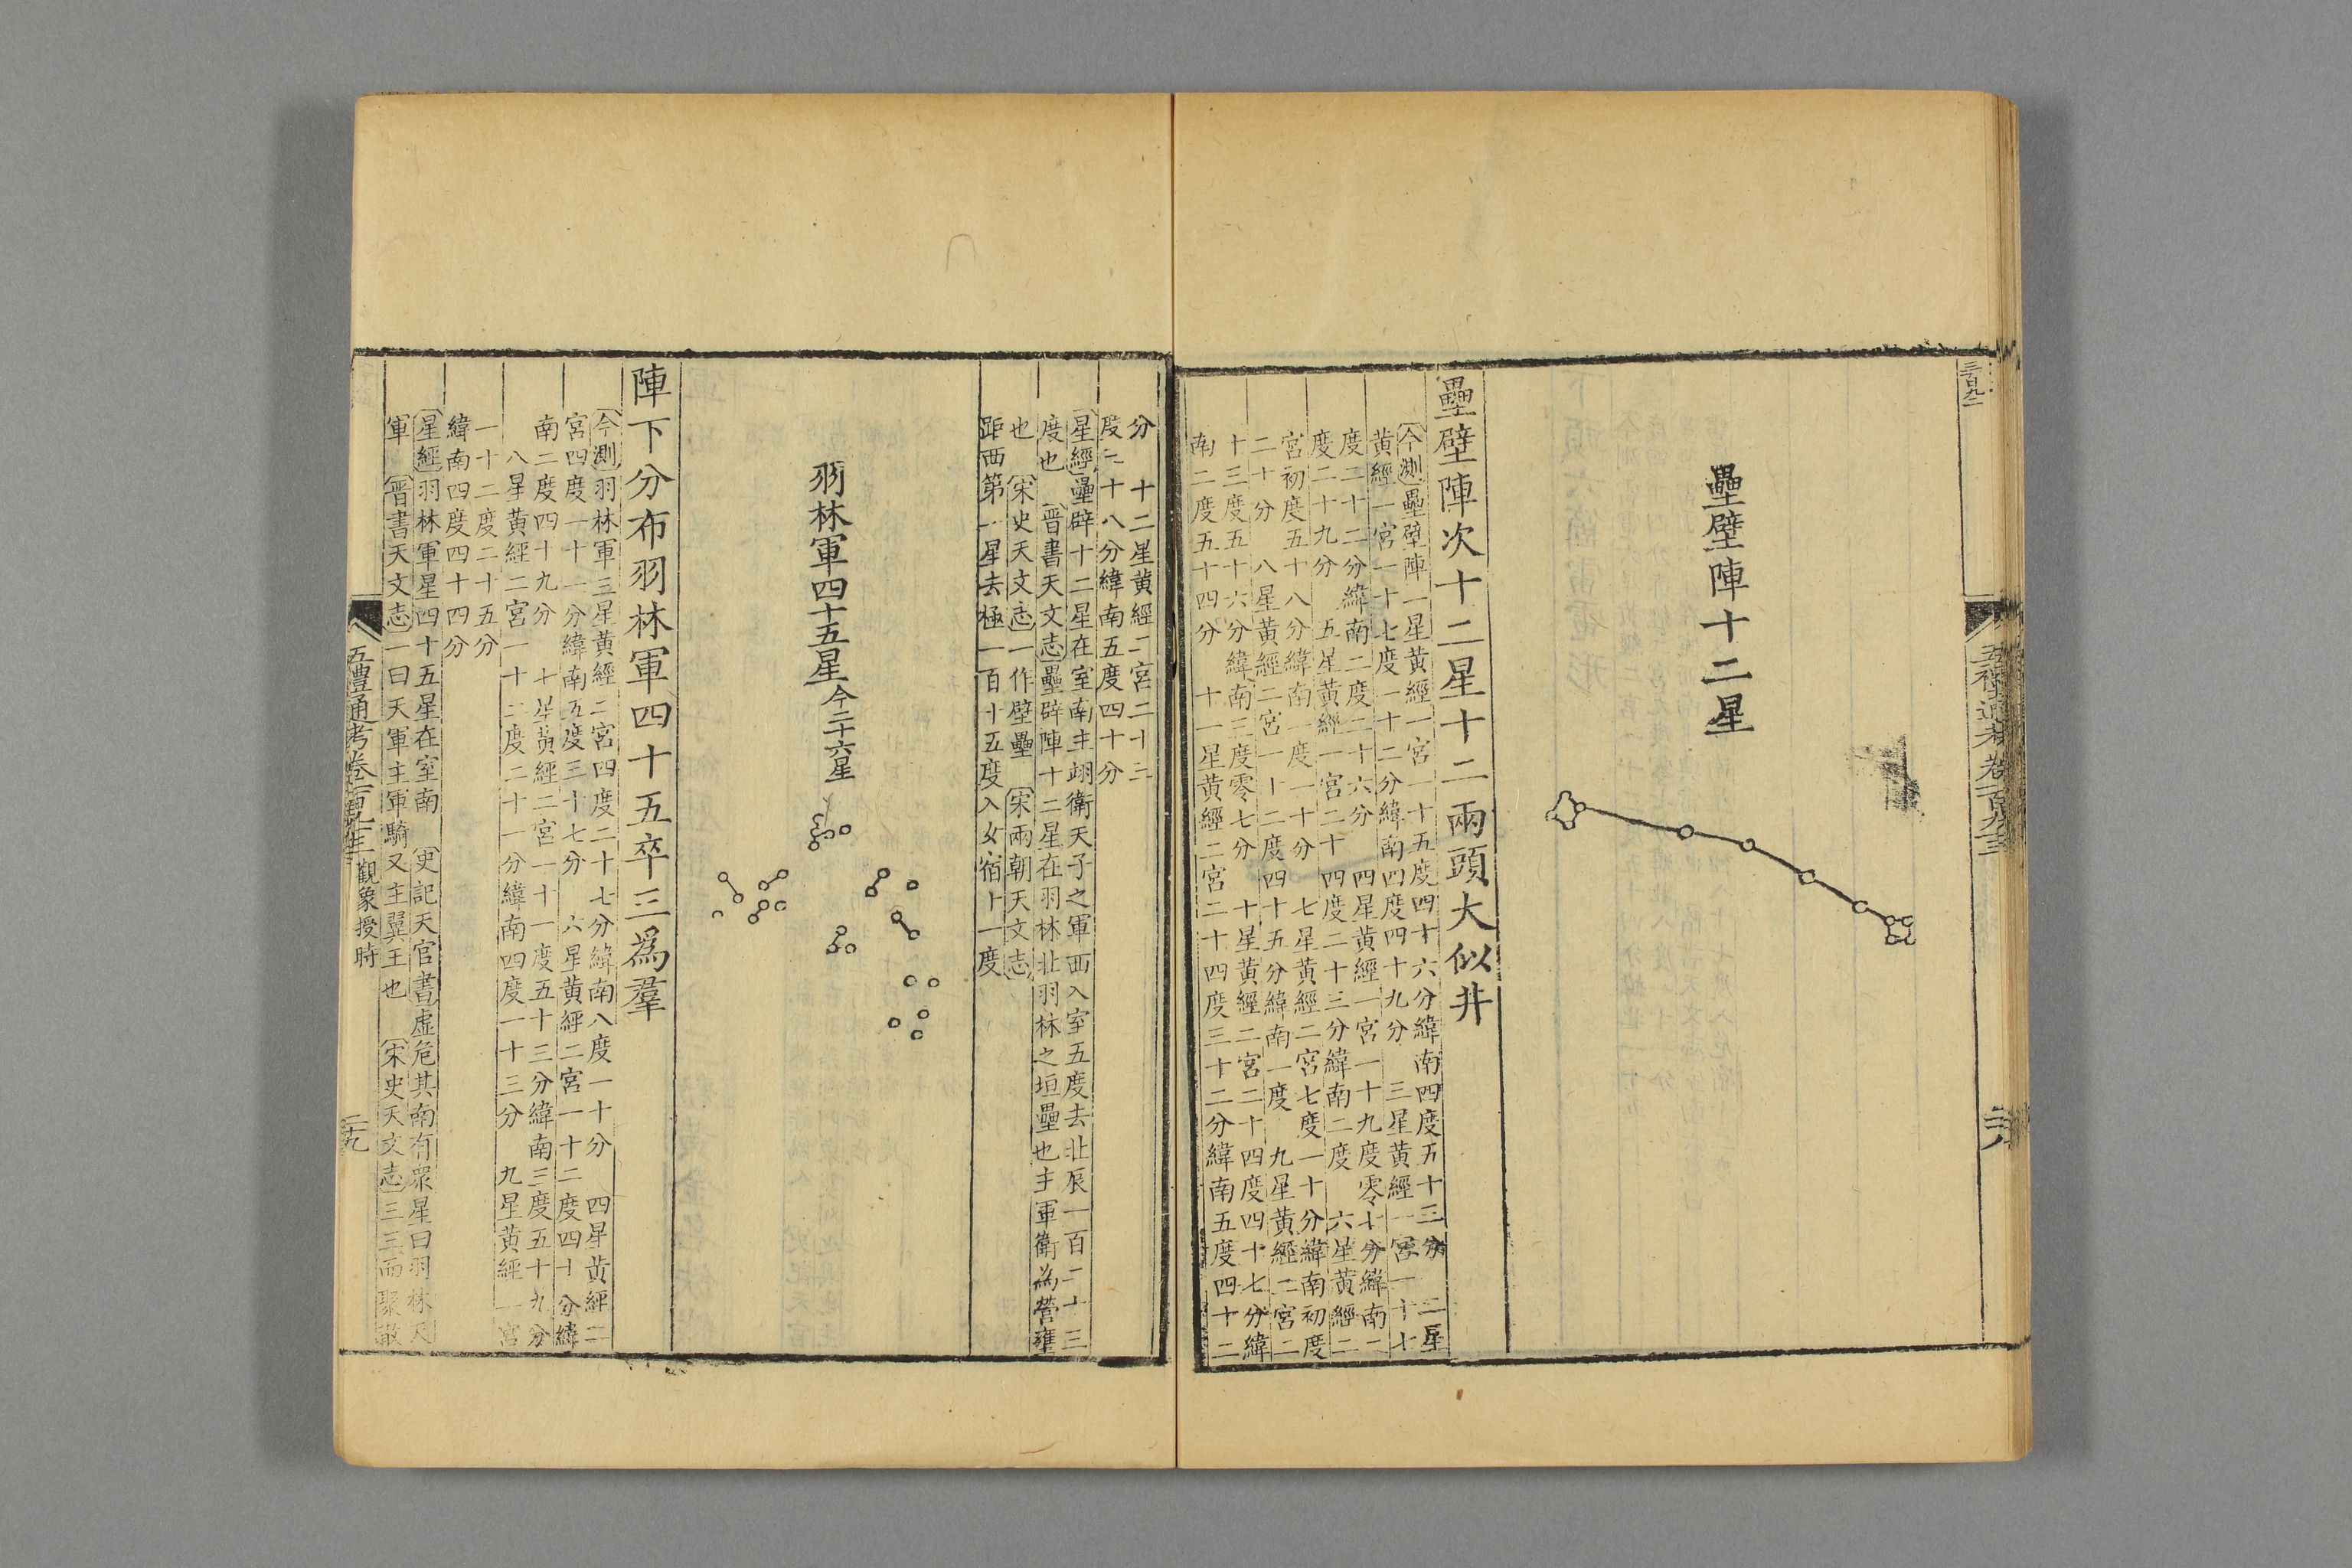 壘壁陣十二星
壘壁陣次十二星十二兩頭大似井
今測壘壁陣一星黃經一宮一十五度四十六分緯南四度五十三分 二星
黃經一宮一十七度一十二分緯南四度四十九分 三星黃經一宮一十七
度二十二分緯南二度二十六分 四星黃經一宮一十九度零十分緯南二
度二十九分 五星黃經一宮二十四度二十三分緯南二度 六星黃經二
宮初度五十八分緯南一度一十分 七星黃經二宮七度一十分緯南初度
二十分 八星黃經二宮一十二度四十五分緯南一度 九星黃經二宮二
十三度五十六分緯南三度零七分 十星黃經二宮二十四度四十七分緯
南二度五十四分 十一星黃經二宮二十四度三十二分緯南五度四十二
分 十二星黃經二宮二十三
度二十八分緯南五度四十分
星經壘辟十二星在室南主翊衛天子之軍西入室五度去北辰一百二十三
度也 晉書天文志壘辟陣十二星在羽林北羽林之垣壘也主軍衛為營壅
也 宋史天文志一作壁壘 宋兩朝天文志
距西第一星去極一百十五度入女宿十一度
羽林軍四十五星今二十六星
陣下分布羽林軍四十五卒三為羣
今測羽林軍三星黃經二宮四度二十七分緯南八度一十分 四星黃經二
宮四度一十一分緯南五度三十七分 六星黃經二宮一十二度四十分緯
南二度四十九分 七星黃經二宮一十一度五十三分緯南三度五十九分
八星黃經二宮一十二度二十一分緯南四度一十三分 九星黃經一宮
一十二度二十五分
緯南四度四十四分
星經羽林軍星四十五星在室南 史記天官書虛危其南有眾星曰羽林天
軍 晉書天文志一曰天軍主軍騎又主翼王也 宋史天文志三三而聚散
五禮通考卷一百九十三 觀象授時
二十九